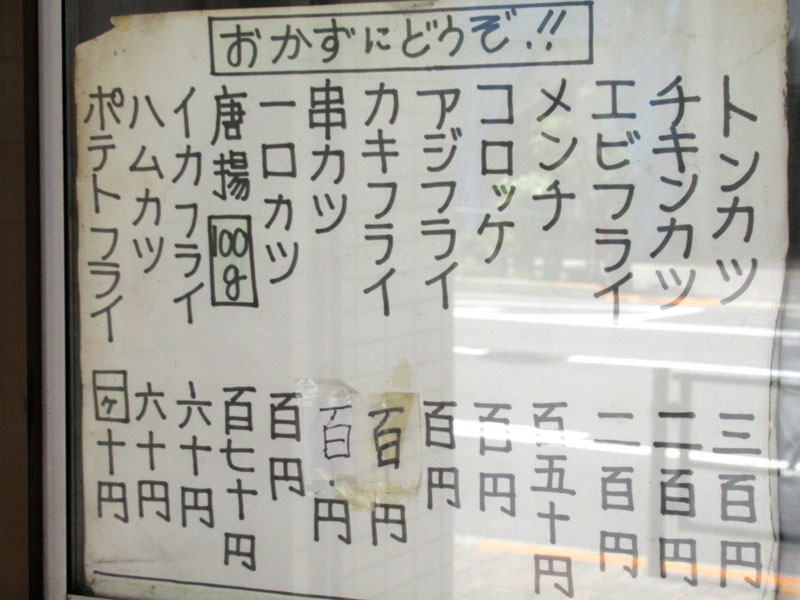 おかずにどうぞ!!
トンカツ 三百円
チキンカツ 二百円
エビフライ 二百円
メンチ 百五十円
コロッケ 百円
アジフライ 百円
カキフライ 百円
串カツ 百円
一口カツ 百円
唐揚 100g 百七十円
イカフライ 六十円
ハムカツ 六十円
ポテトフライ 一ヶ 十円